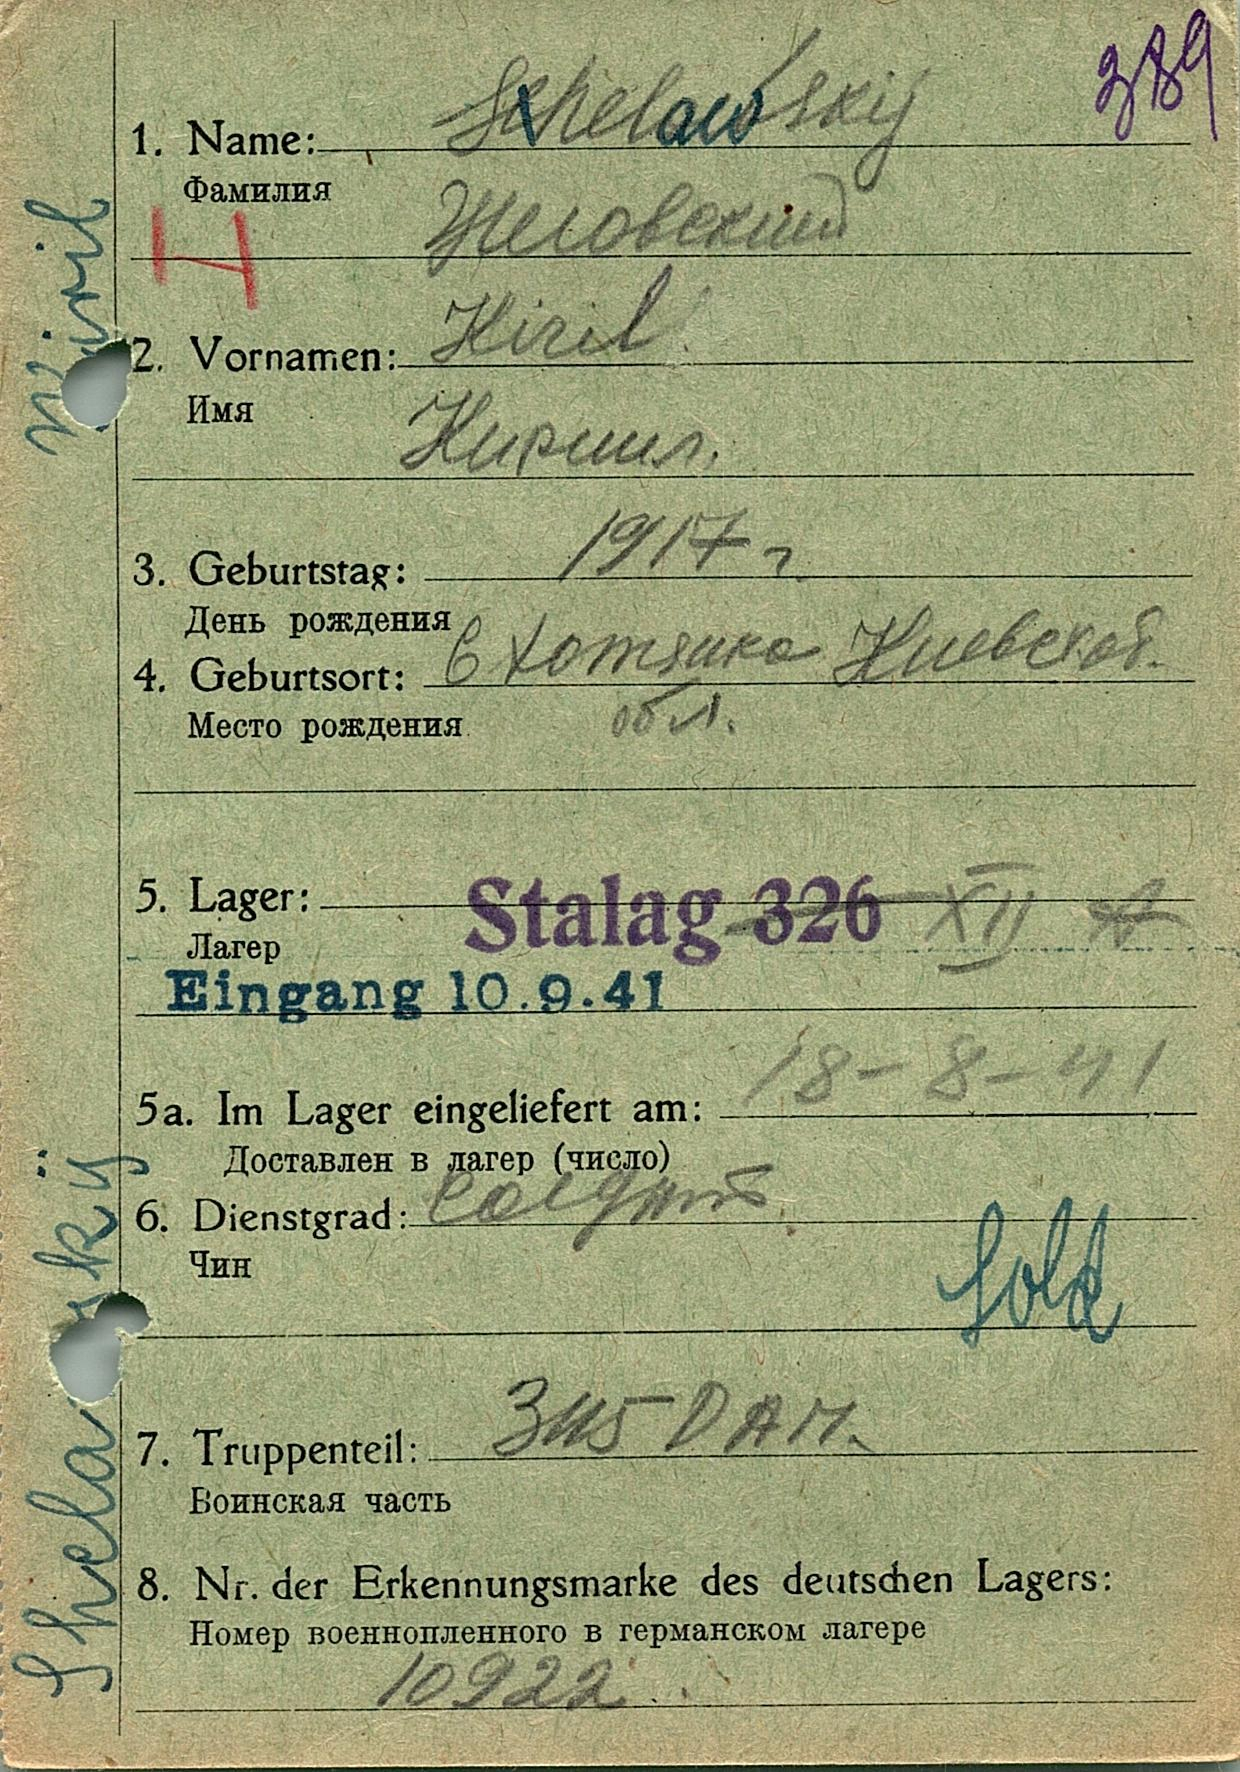 389
1. Name: Schelawskij
Фамилия
Желовский
H
2. Vornamen: Kiril
Имя
Кирил.
3. Geburtstag: 1917 г.
День рождения
4. Geburtsort: с Хотянка Киевской
обл.
Место рождения
5. Lager: Stalag 326 XII A
Лагер
Eingang 10.9.41
5a. Im Lager eingeliefert am: 18-8-41
Доставлен в лагер (число)
6. Dienstgrad: Солдат
Чин
Sold
7. Truppenteil: 345 DAП.
Воинская часть
8. Nr. der Erkennungsmarke des deutschen Lagers:
Номер военнопленного в германском лагере
10922
Shelawskÿ Kiril